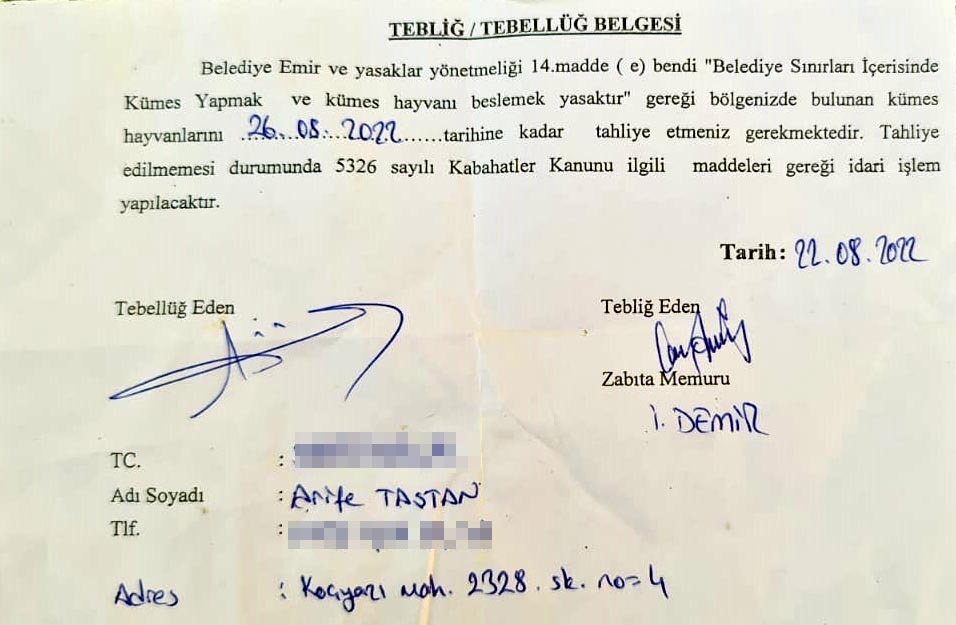 TEBLİĞ / TEBELLÜĞ BELGESİ
Belediye Emir ve yasaklar yönetmeliği 14.madde ( e) bendi "Belediye Sınırları İçerisinde
Kümes Yapmak ve kümes hayvanı beslemek yasaktır" gereği bölgenizde bulunan kümes
hayvanlarını 26.08.2022 tarihine kadar tahliye etmeniz gerekmektedir. Tahliye
edilmemesi durumunda 5326 sayılı Kabahatler Kanunu ilgili maddeleri gereği idari işlem
yapılacaktır.
Tarih: 22.08.2022
Tebellüğ Eden
Tebliğ Eden
Zabıta Memuru
İ. DEMİR
TC. :
Adı Soyadı : Arife TAŞTAN
Tlf. :
Adres : Koçyazı Mah. 2328. sk. no=4